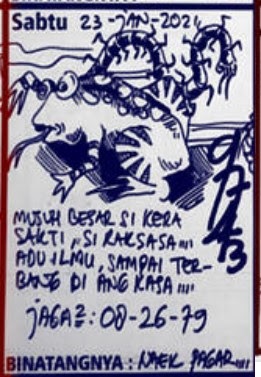 Sabtu 23-JAN-2021
9743
MUSUH BESAR SI KERA
SAKTI, SI RAKSASA,,,,
ADU ILMU, SAMPAI TER-
BANG DI ANGKASA ,,,,
JAGA2: 08-26-79
BINATANGNYA: NAEK PAGAR,,,,